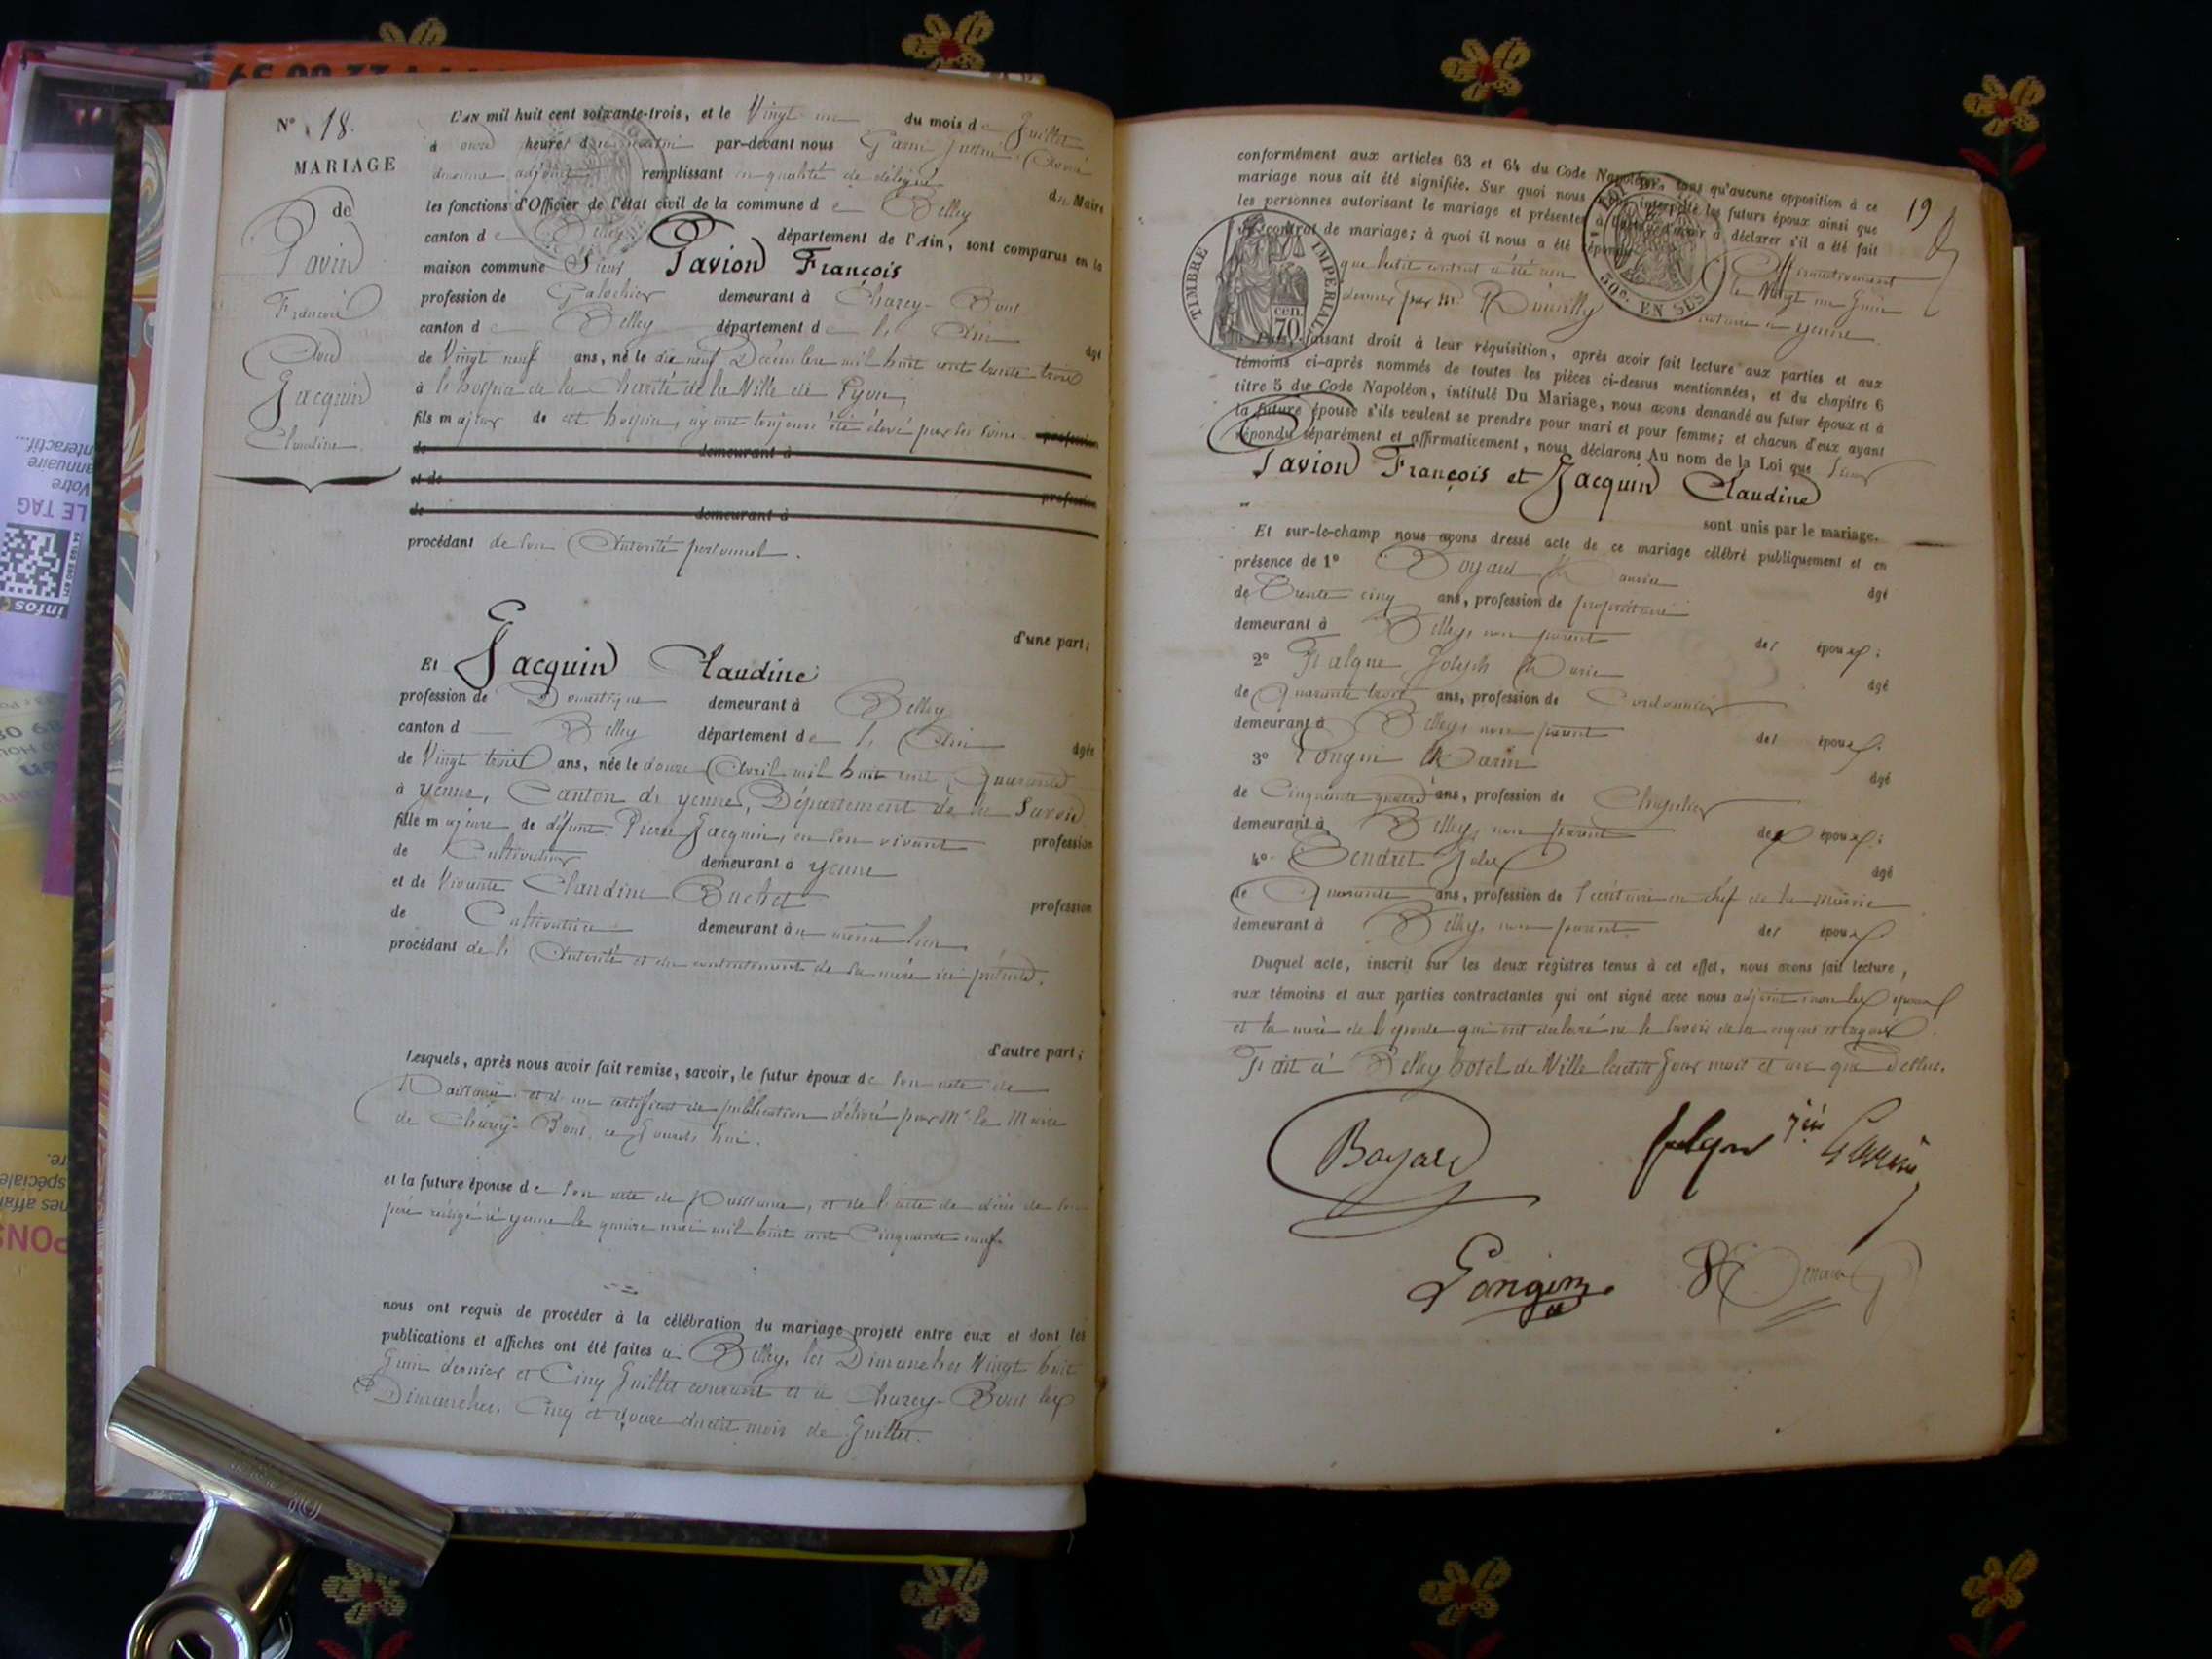 N° 18.
MARIAGE
de
Pavin
François
Avec
Jacquin
Claudine
L'AN mil huit cent soixante-trois, et le Vingt un du mois de Juillet
à onze heures du matin par-devant nous
adjoint remplissant en qualité de délégué du Maire
les fonctions d'Officier de l'état civil de la commune de Belley
canton de Belley département de l'Ain, sont comparus en la
maison commune Sieur Pavion François
profession de Galochier demeurant à Charey-Bons
canton de Belley département de l'Ain âgé
de Vingt neuf ans, né le dix neuf Décembre mil huit cent trente trois
à l'hospice de la Charité de la Ville de Lyon,
fils majeur de cet hospice, ayant toujours été élevé par ses soins profession
de demeurant à
et de profession
de demeurant à
procédant de son Autorité personnel.
d'une part;
Et Jacquin Claudine
profession de Domestique demeurant à Belley
canton d Belley département de l'Ain âgée
de Vingt trois ans, née le douze Avril mil huit cent Quarante
à yenne, Canton de yenne, Département de la Savoie
fille majeure de défunt Pierre Jacquin, en son vivant profession
de Cultivateur demeurant à yenne
et de Vivante Claudine Buchet profession
de Cultivatrice demeurant au même lieu
procédant de l'Autorité et du consentement de sa mère ici présente.
d'autre part;
Lesquels, après nous avoir fait remise, savoir, le futur époux de son acte de
Naissance et d'un certificat de publication délivré par Mr le Maire
de Charey-Bons, ce Jourd'hui.
et la future épouse de son acte de Naissance, et de l'acte de décès de son
père rédigé à yenne le quinze mai mil huit cent Cinquante neuf
nous ont requis de procéder à la célébration du mariage projeté entre eux et dont les
publications et affiches ont été faites à Belley, les Dimanches Vingt huit
Juin dernier et Cinq Juillet courant et à Charey-Bons les
Dimanches, Cinq et douze dudit mois de Juillet.
19
conformément aux articles 63 et 64 du Code Napoléon, sans qu'aucune opposition à ce
mariage nous ait été signifiée. Sur quoi nous avons interpellé les futurs époux ainsi que
les personnes autorisant le mariage et présentes à déclarer s'il a été fait
un contrat de mariage; à quoi il nous a été répondu Affirmativement
que ledit contrat a été le Vingt un Juin
dernier par Mr notaire à yenne.
TIMBRE IMPÉRIAL
70 cen.
50c. EN SUS
faisant droit à leur réquisition, après avoir fait lecture aux parties et aux
témoins ci-après nommés de toutes les pièces ci-dessus mentionnées, et du chapitre 6
titre 5 du Code Napoléon, intitulé Du Mariage, nous avons demandé au futur époux et à
la future épouse s'ils veulent se prendre pour mari et pour femme; et chacun d'eux ayant
répondu séparément et affirmativement, nous déclarons Au nom de la Loi que Sieur
Pavion François et Jacquin Claudine
sont unis par le mariage.
Et sur-le-champ nous avons dressé acte de ce mariage célébré publiquement et en
présence de 1° Boyard âgé
de Trente cinq ans, profession de propriétaire
demeurant à Belley, non parent des époux;
2° Falque Joseph Marie âgé
de Quarante trois ans, profession de Cordonnier
demeurant à Belley, non parent des époux;
3° Longin Marin âgé
de Cinquante quatre ans, profession de Chapelier
demeurant à Belley, non parent des époux;
4° Jules âgé
de Quarante ans, profession de Secrétaire en chef de la mairie
demeurant à Belley, non parent des époux
Duquel acte, inscrit sur les deux registres tenus à cet effet, nous avons fait lecture,
aux témoins et aux parties contractantes qui ont signé avec nous adjoint non les époux
et la mère de l'épouse qui ont déclaré ne le savoir de ce enquis et requis.
Fait à Belley hotel de Ville lesdits Jour mois et an que Dessus.
Boyard
Longin